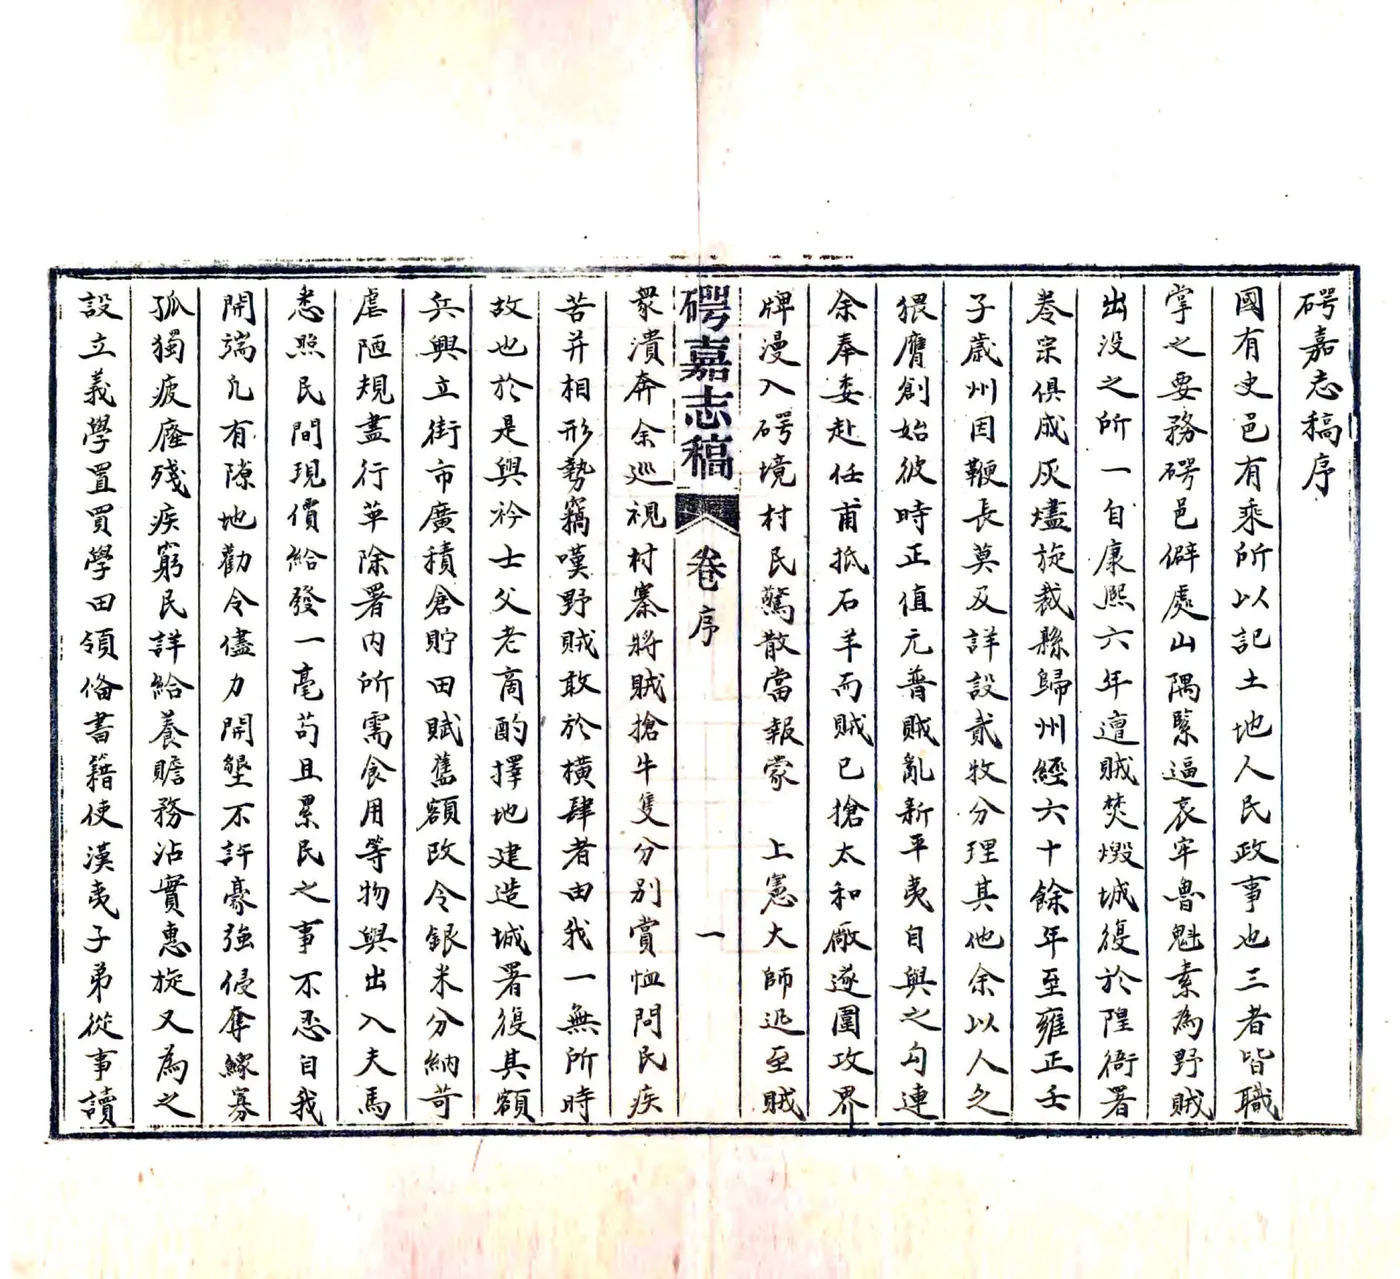 碍嘉志稿序
國有史邑有乘所以記土地人民政事也三者皆職
掌之要務碍邑僻處山隅緊逼哀牢魯魁素為野賊
出没之所一自康熙六年遭賊焚燬城復於隍衙署
卷宗俱成灰燼旋裁縣歸州經六十餘年至雍正壬
子歲州因鞭長莫及詳設貳牧分理其他余以人之
猥膺創始彼時正值元普賊亂新平夷自與之勾連
余奉委赴任甫抵石羊而賊已搶太和廠遂圍攻界
牌漫入碍境村民驚散當報蒙 上憲大師迅至賊
衆潰奔余巡視村寨將賊搶牛隻分別賞恤問民疾
苦并相形勢竊嘆野賊敢於橫肆者由我一無所時
故也於是與衿士父老商酌擇地建造城署復其額
兵興立街市廣積倉貯田賦舊額改令銀米分納苛
虐陋規盡行革除署内所需食用等物與出入夫馬
悉照民間現價給發一毫苟且累民之事不忍自我
開端凡有隙地勸令儘力開墾不許豪強侵奪鰥寡
孤獨疲癃殘疾窮民詳給養贍務沾實惠旋又為之
設立義學置買學田領俻書籍使漢夷子弟從事讀
碍嘉志稿 卷序 一